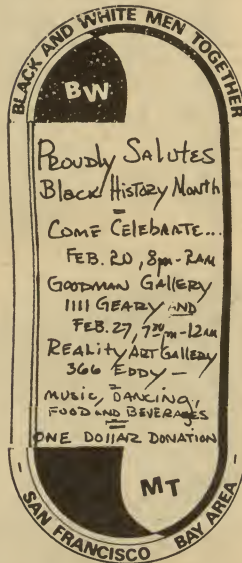 BLACK AND WHITE MEN TOGETHER
BW
PROUDLY SALUTES
BLACK HISTORY MONTH
COME CELEBRATE...
FEB. 20, 8pm-2AM
GOODMAN GALLERY
1111 GEARY AND
FEB. 27, 7:30pm-12AM
REALITY ART GALLERY
366 EDDY —
MUSIC, DANCING,
FOOD AND BEVERAGES
ONE DOLLAR DONATION
MT
- SAN FRANCISCO BAY AREA -